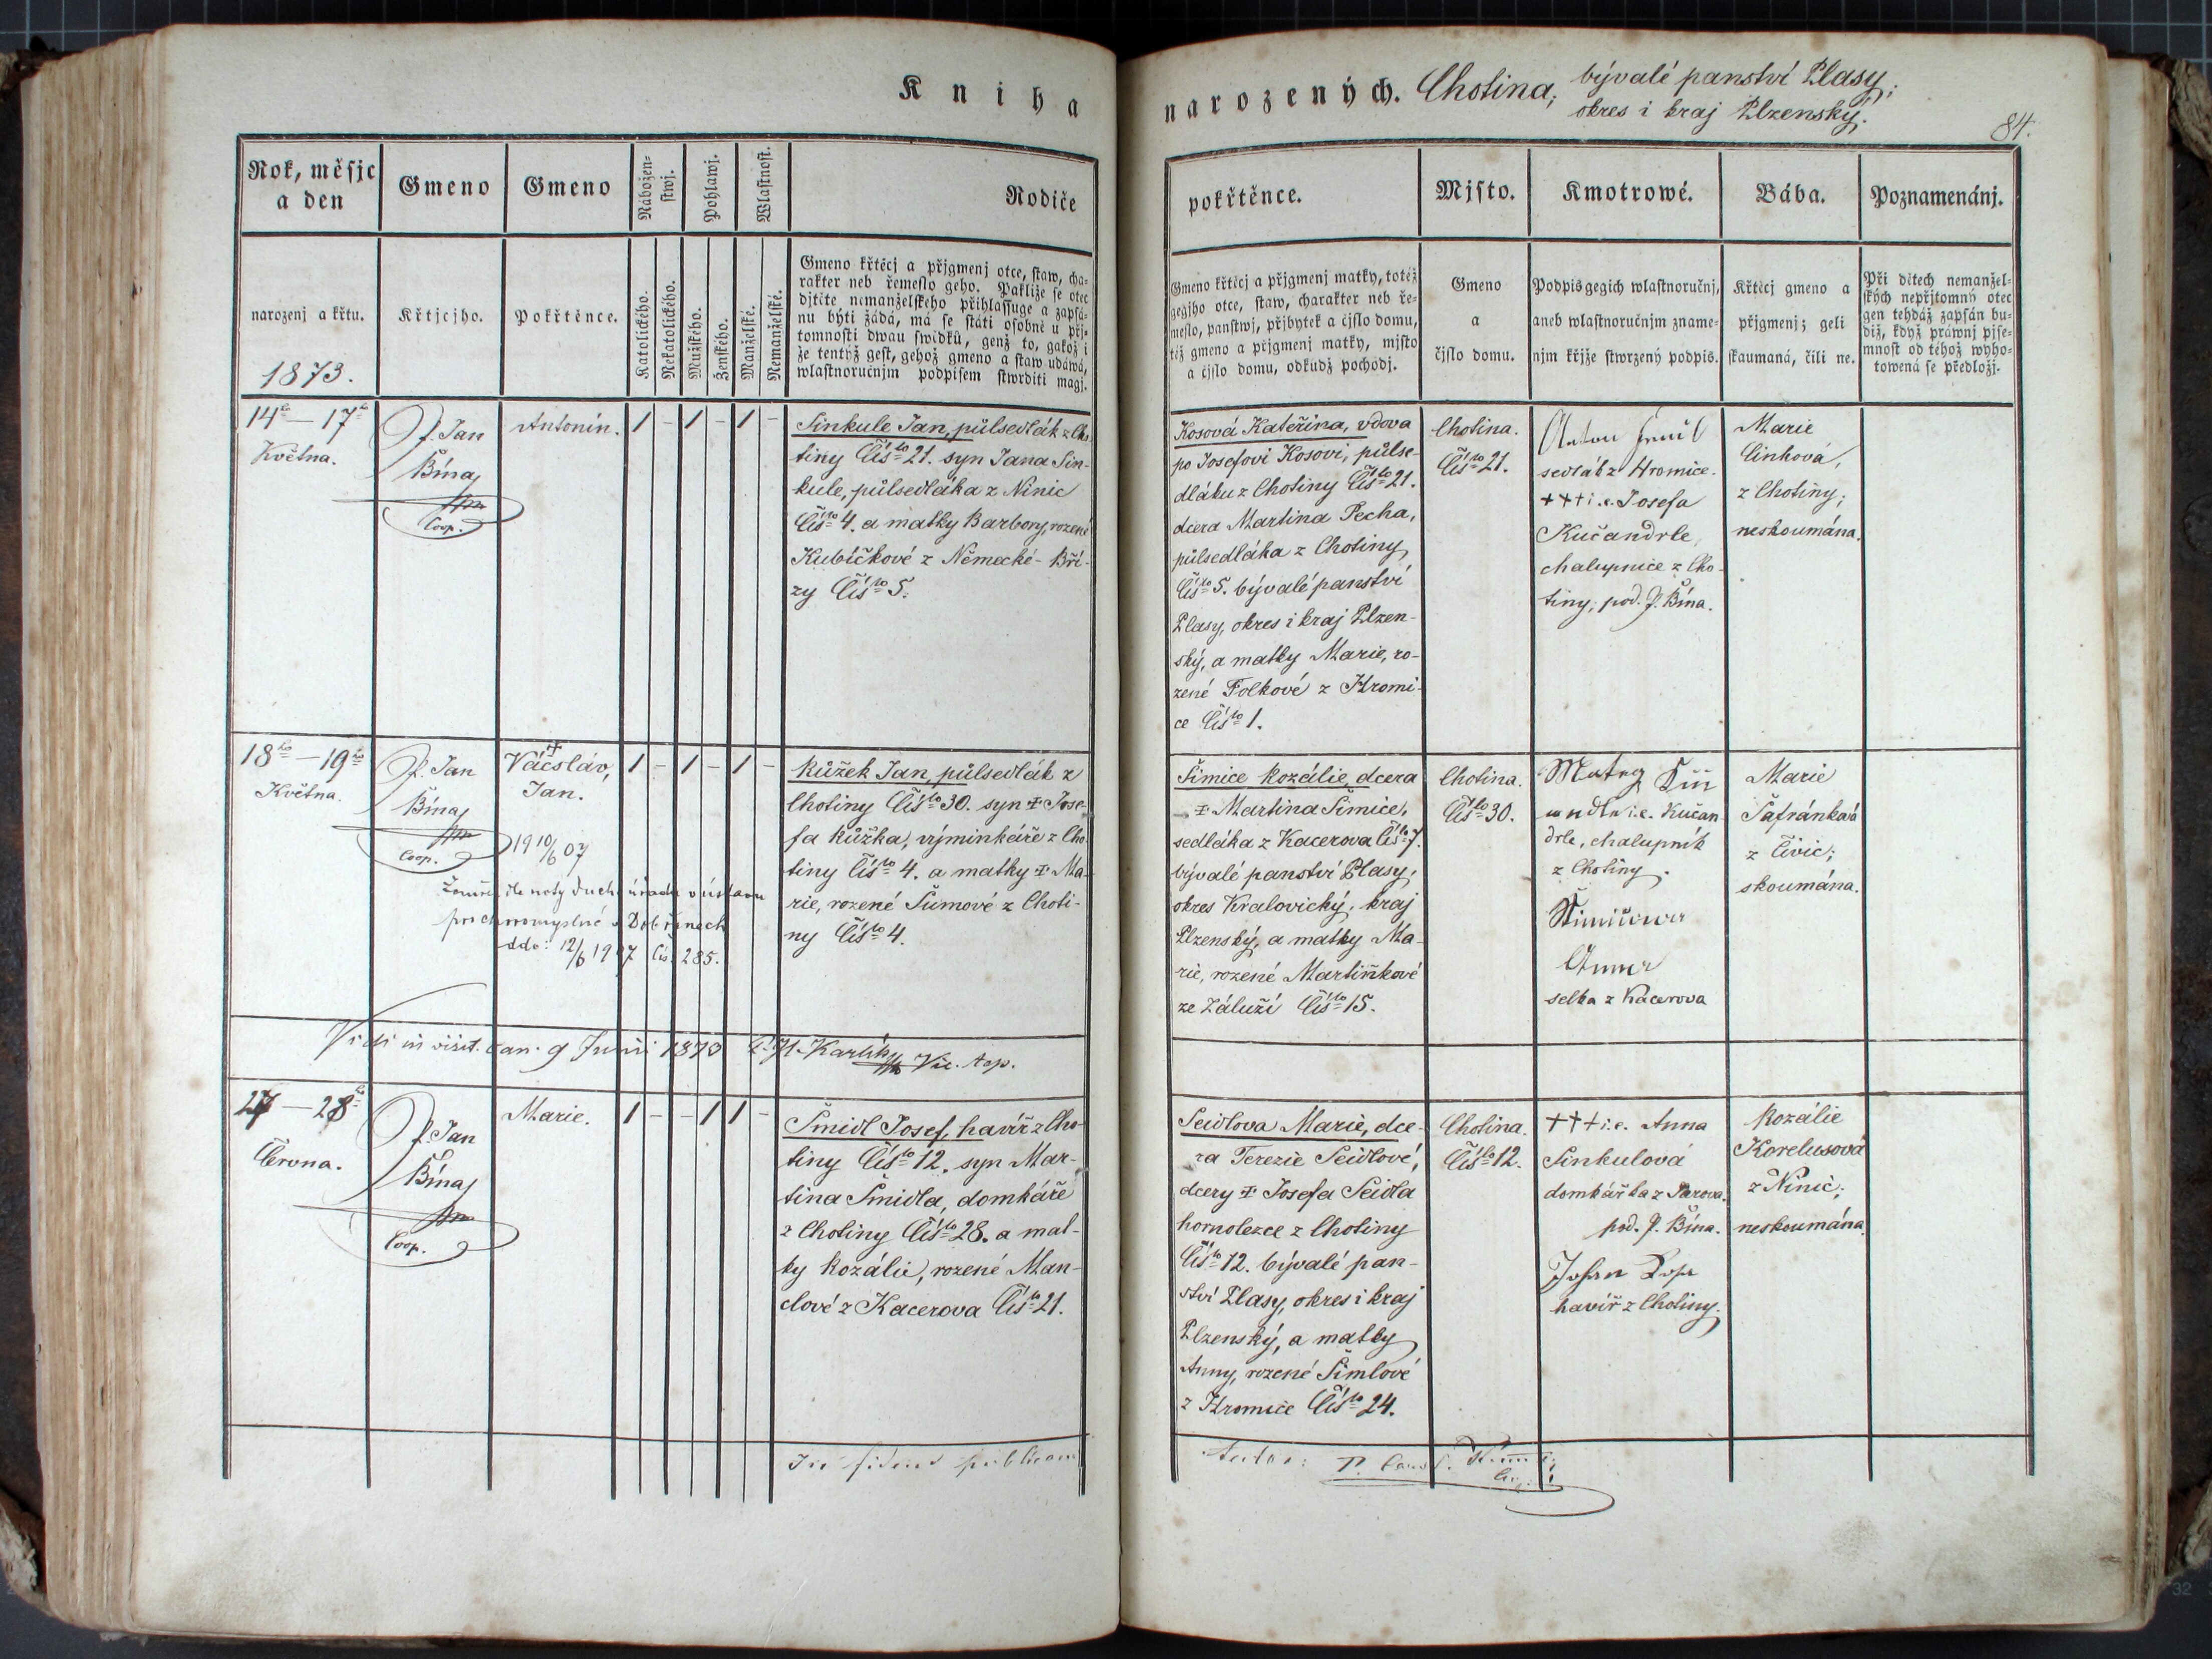 Kniha
narozených. Chotina, bývalé panství Plasy,
okres i kraj Plzenský.
84.
Rok, měsjc
a den
Gmeno
Gmeno
Nábožen-
stwj.
Pohlawj.
Wlastnost.
Rodiče
narozenj a křtu.
1873.
Křtjcjho.
Pokřtěnce.
Katolického.
Nekatolického.
Mužského.
Ženského.
Manželské.
Nemanželské.
Gmeno křtěcj a přjgmenj otce, staw, cha-
rakter neb řemeslo geho. Pakliže se otec
djtěte nemanželského přihlassuge a zapsá-
nu býti žádá, má se státi osobně u přj-
tomnosti dwau swědků, genž to, gakož i
že tentýž gest, gehož gmeno a staw udáwá,
wlastnoručnjm podpisem stwrditi magj.
pokřtěnce.
Mjsto.
Kmotrowé.
Bába.
Poznamenánj.
Gmeno křtěcj a přjgmenj matky, totéž
gegjho otce, staw, charakter neb ře-
meslo, panstwj, přjbytek a čjslo domu,
též gmeno a přjgmenj matky, mjsto
a čjslo domu, odkudž pochodj.
Gmeno
a
čjslo domu.
Podpis gegich wlastnoručnj,
aneb wlastnoručnjm zname-
njm křjže stwrzený podpis.
Křtěcj gmeno a
přjgmenj; geli
skaumaná, čili ne.
Při djtech nemanžel-
ských nepřjtomný otec
gen tehdáž zapsán bu-
diž, když práwnj pjse-
mnost od téhož wyho-
towená se předložj.
14ho — 17ho
Května.
P. Jan
Bína
Coop.
Antonín.
1 - 1 - 1 -
Sinkule Jan, půlsedlák z Cho-
tiny Čís. 21. syn Jana Sin-
kule, půlsedláka z Ninic
Čís. 4. a matky Barbory, rozené
Kubíčkové z Německé-Bří-
zy Čís. 5.
Kosová Kateřina, vdova
po Josefovi Kosovi, půlse-
dláku z Chotiny Čís. 21.
dcera Martina Pecha,
půlsedláka z Chotiny
Čís. 5. bývalé panství
Plasy, okres i kraj Plzen-
ský, a matky Marie, ro-
zené Folkové z Hromi-
ce Čís. 1.
Chotina.
Čís. 21.
Anton
sedlák z Hromice.
+++ i.e. Josefa
Kučandrle,
chalupnice z Cho-
tiny, pod. J. Bína.
Marie
Cinková,
z Chotiny;
neskoumána.
18ho — 19ho
Května.
P. Jan
Bína
Coop.
+
Václav,
Jan.
19 10/6 07
Zemřel dle noty duch. úřadu v ústavu
pro choromyslné v Dobřanech
ddo: 12/6 1907 čís. 285.
1 - 1 - 1 -
Růžek Jan, půlsedlák z
Chotiny Čís. 30. syn + Jose-
fa Růžka, výminkáře z Cho-
tiny Čís. 4. a matky + Ma-
rie, rozené Šůmové z Choti-
ny Čís. 4.
Šimice Rozálie, dcera
+ Martina Šimice,
sedláka z Kacerova Čís. 7.
bývalé panství Plasy,
okres Kralovický, kraj
Plzenský, a matky Ma-
rie, rozené Martínkové
ze Záluží Čís. 15.
Chotina.
Čís. 30.
i.e. Kučan-
drle, chalupník
z Chotiny.
Anna
selka z Kacerova
Marie
Šafránková
z Čivic;
skoumána.
Vidi in visit. can. 9 Junii 1873 Karlík Vic. top.
27 — 28ho
Června.
P. Jan
Bína
Coop.
Marie.
1 - - 1 1 -
Šmidl Josef, havíř z Cho-
tiny Čís. 12. syn Mar-
tina Šmidla, domkáře
z Chotiny Čís. 28. a mat-
ky Rozálie, rozené Man-
clové z Kacerova Čís. 21.
Seidlova Marie, dce-
ra Terezie Seidlové,
dcery + Josefa Seidla
hornolezce z Chotiny
Čís. 12. bývalé pan-
ství Plasy, okres i kraj
Plzenský, a matky
Anny, rozené Šimlové
z Hromice Čís. 24.
Chotina.
Čís. 12.
+++ i.e. Anna
Sinkulová
domkářka z Žarova.
pod. J. Bína.
Johan
havíř z Chotiny.
Rozálie
Korelusová
z Ninic;
neskoumána.
In fidem publicam